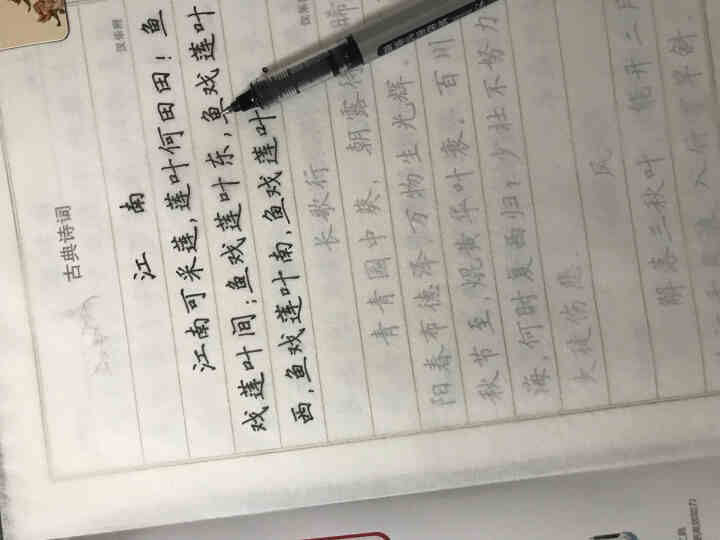 古典诗词
江南
江南可采莲,莲叶何田田!鱼
戏莲叶间;鱼戏莲叶东,鱼戏莲叶
西,鱼戏莲叶南,鱼戏莲叶
长歌行
青青园中葵,朝露待晞
阳春布德泽 万物生光辉。
秋节至,焜黄华叶衰。百川
海,何时复西归?少壮不努力
大徒伤悲。
风
解落三秋叶 能开二月
入竹 竿斜.